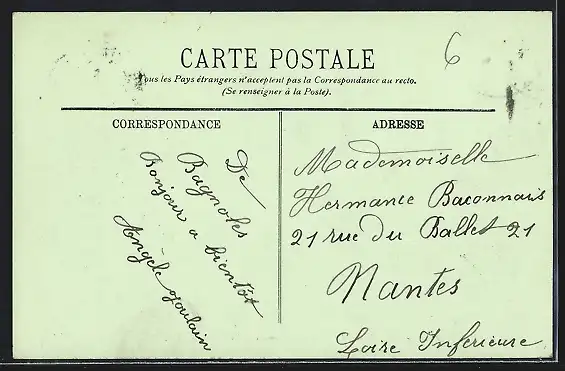 6
CARTE POSTALE
Tous les Pays étrangers n'acceptent pas la Correspondance au recto.
(Se renseigner à la Poste).
CORRESPONDANCE
De
Bagnoles
Bonjour a bientôt
Angèle
ADRESSE
Mademoiselle
Hermance Baconnais
21 rue du Ballet 21
Nantes
Loire Inferieure